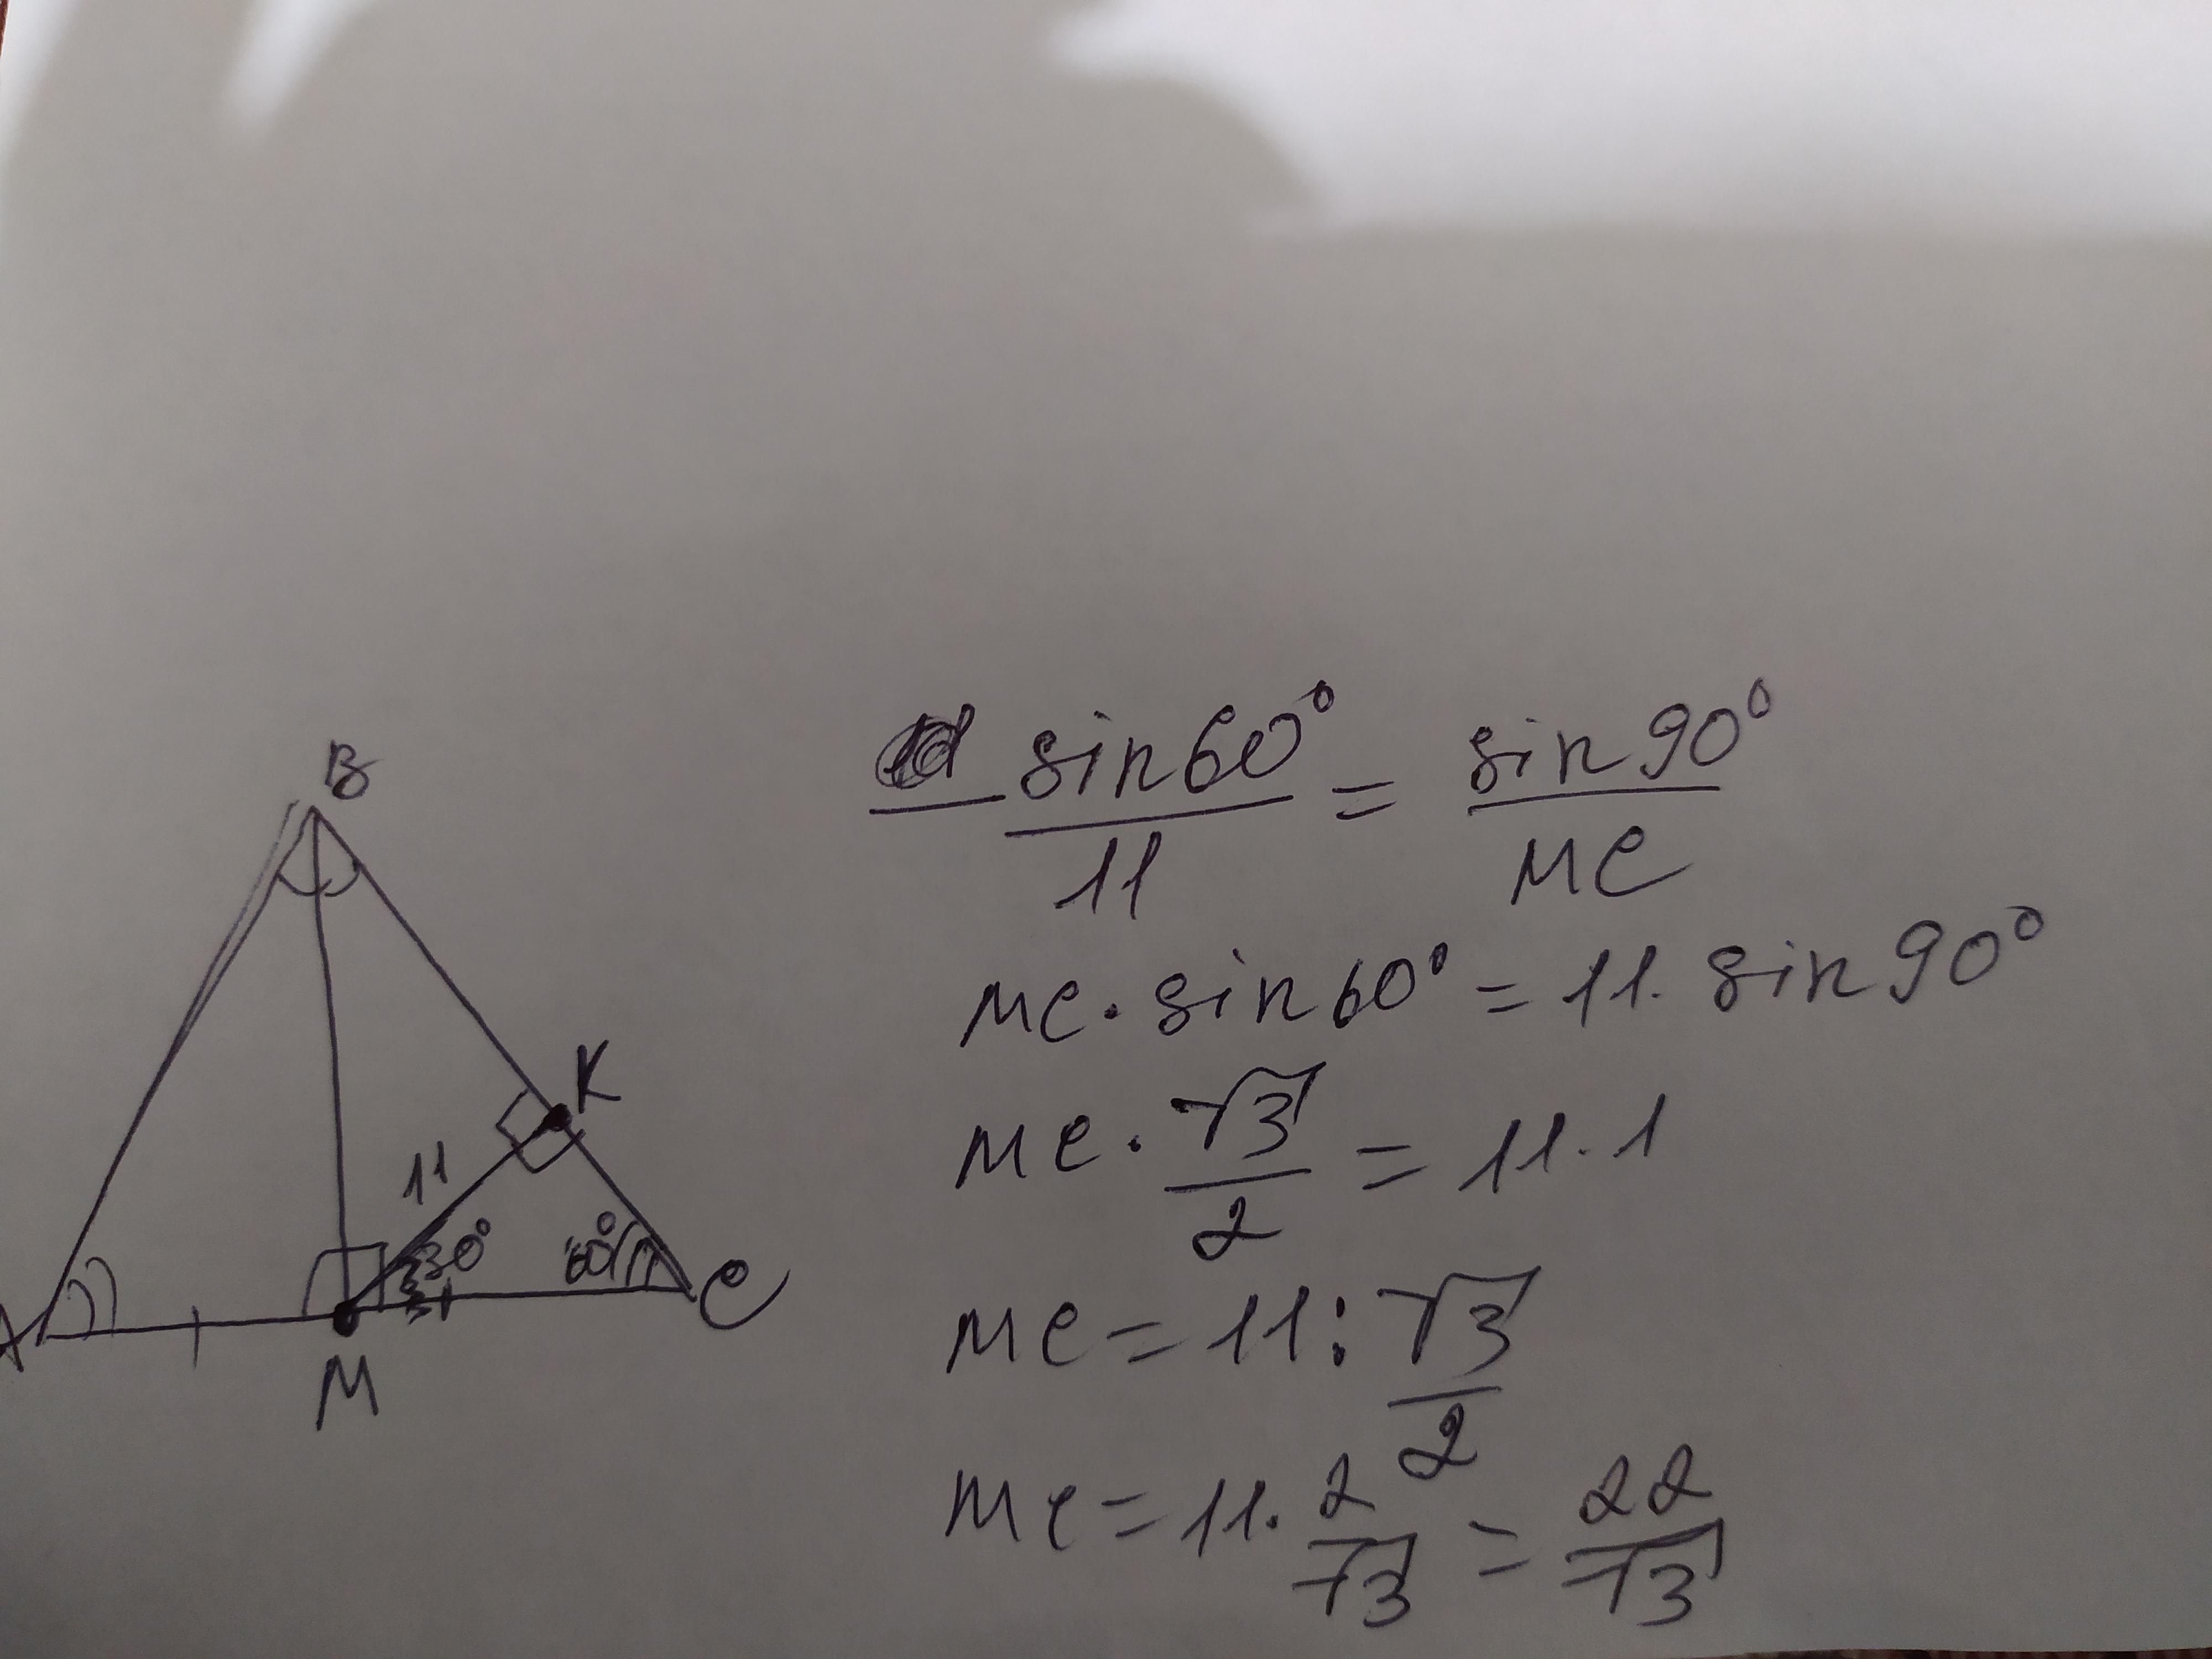 B
K
11
30°
60°
A
C
M
sin60°/11 = sin90°/MC
MC · sin60° = 11 · sin90°
MC · √3/2 = 11 · 1
MC = 11 : √3/2
MC = 11 · 2/√3 = 22/√3